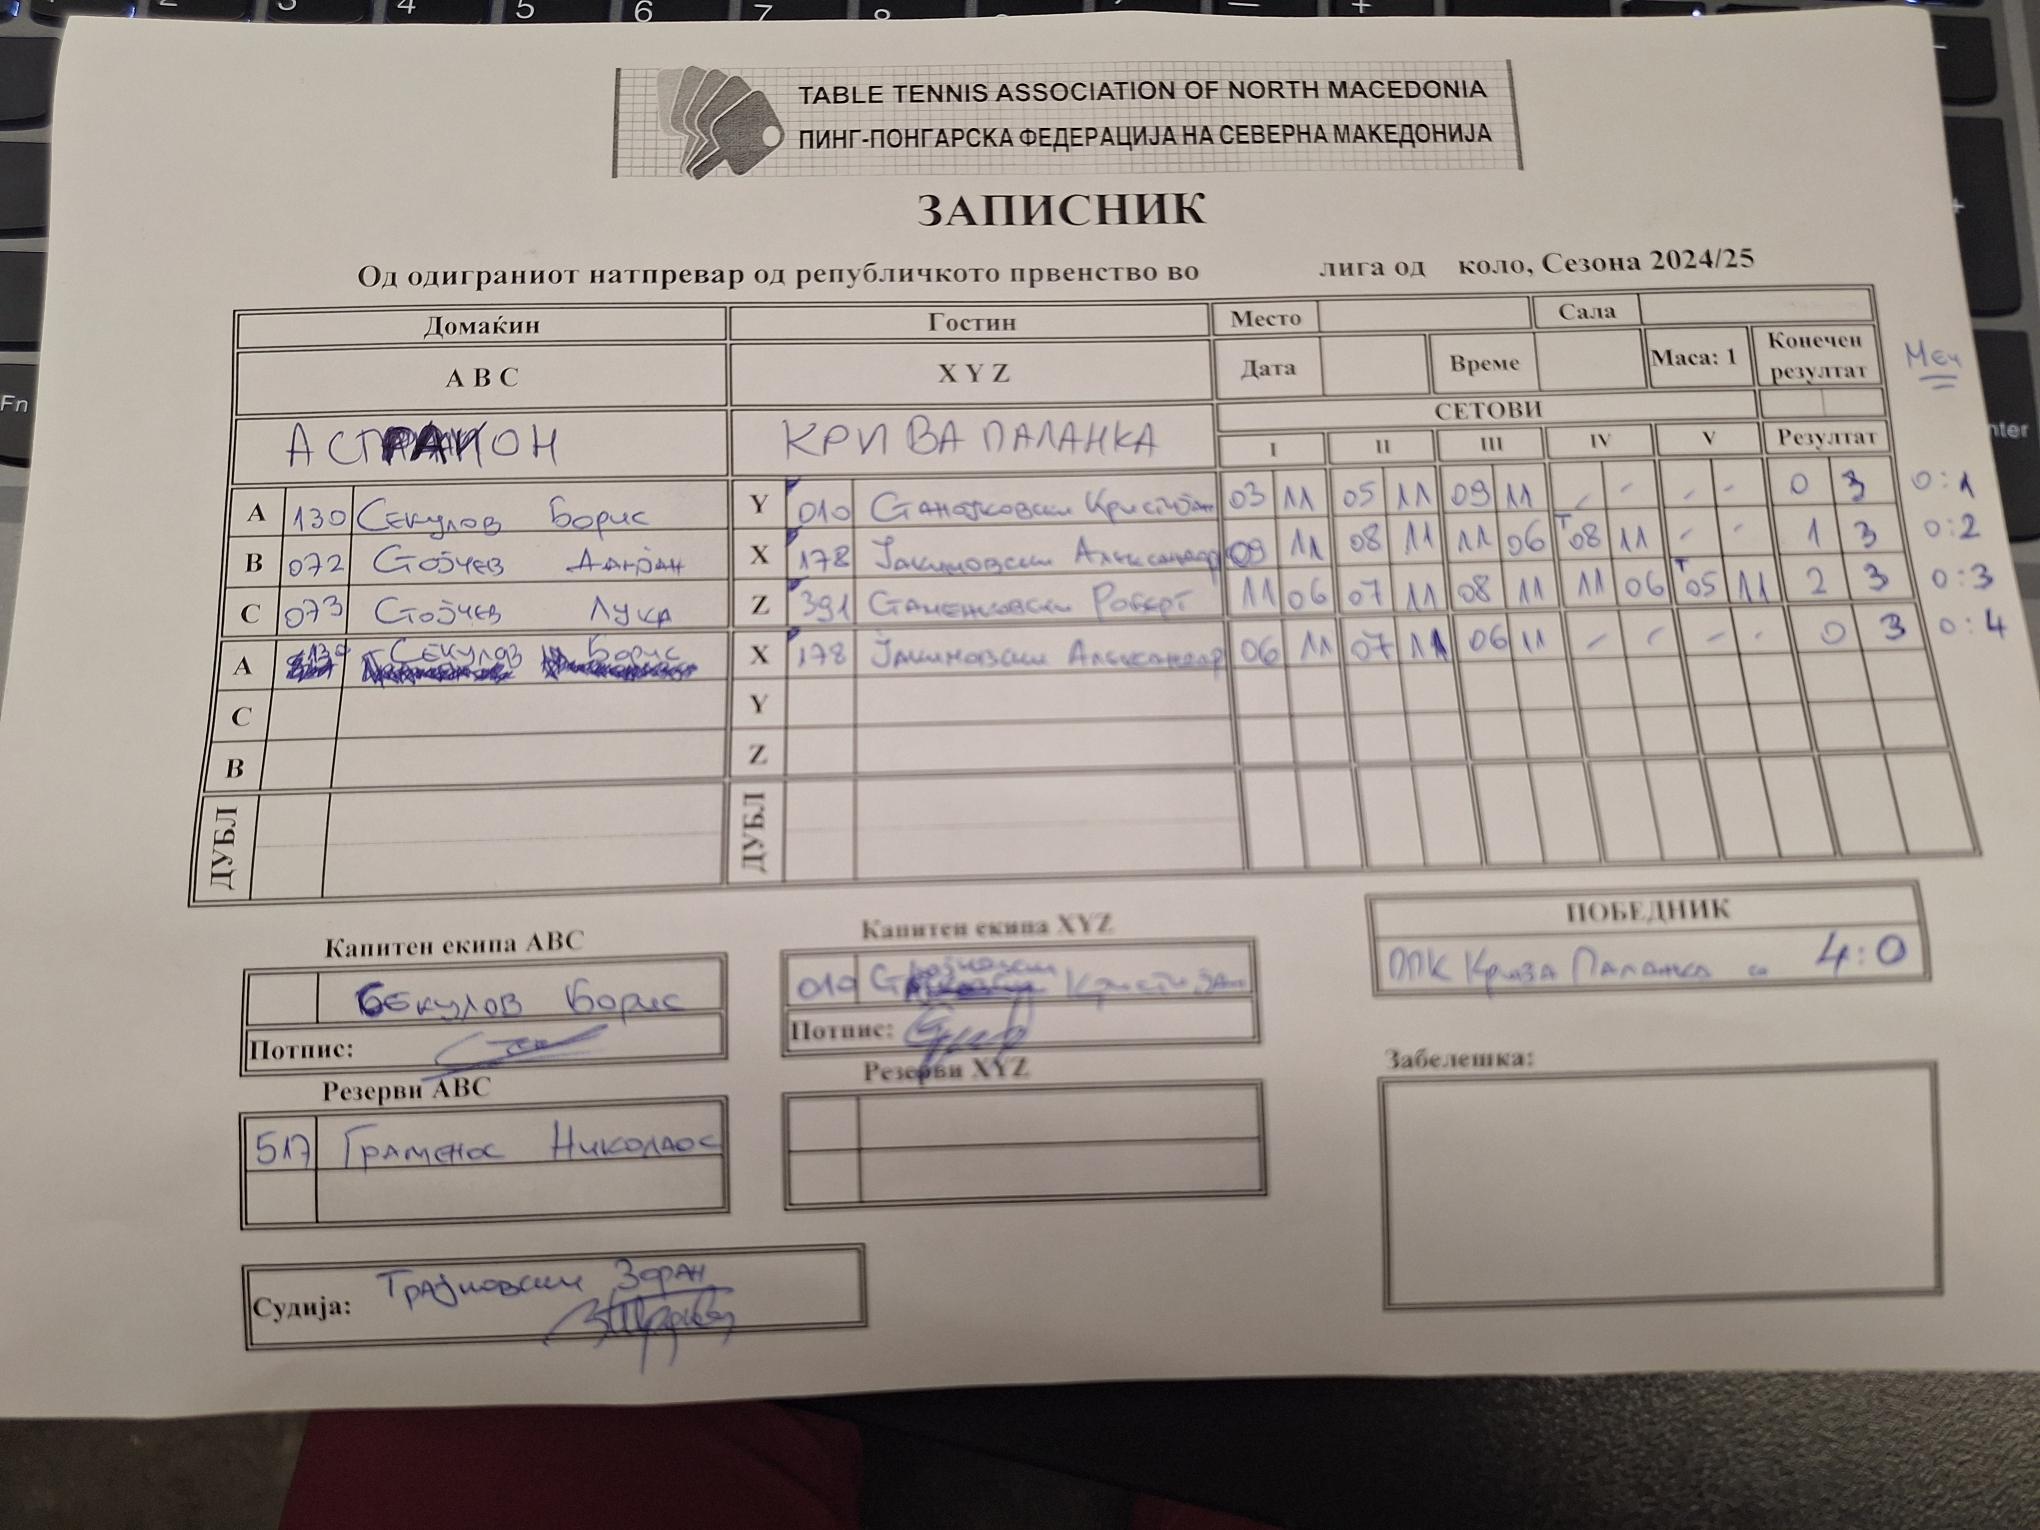 TABLE TENNIS ASSOCIATION OF NORTH MACEDONIA
ПИНГ-ПОНГАРСКА ФЕДЕРАЦИЈА НА СЕВЕРНА МАКЕДОНИЈА
ЗАПИСНИК
Од одиграниот натпревар од републичкото првенство во лига од коло, Сезона 2024/25
Домаќин Гостин Место Сала
A B C X Y Z Дата Време Маса: 1 Конечен резултат Меч
КРИВА ПАЛАНКА СЕТОВИ
I II III IV V Резултат
A 130 Секулов Борис Y 010 Станојковски Кристијан 03 11 05 11 09 11 - - - - 0 3 0:1
B 072 Стојчев Дамјан X 178 Јакимовски Александар 09 11 08 11 11 06 08 11 - - 1 3 0:2
C 073 Стојчев Лука Z 391 Стаменковски Роберт 11 06 07 11 08 11 11 06 05 11 2 3 0:3
A 130 Секулов Борис X 178 Јакимовски Александар 06 11 07 11 06 11 - - - - 0 3 0:4
C Y
B Z
ДУБЛ ДУБЛ
Капитен екипа ABC Капитен екипа XYZ ПОБЕДНИК
Секулов Борис 010 Кристијан ППК Крива Паланка со 4:0
Потпис: Потпис:
Резерви ABC Резерви XYZ Забелешка:
517 Граменос Николаос
Судија: Трајковски Зоран